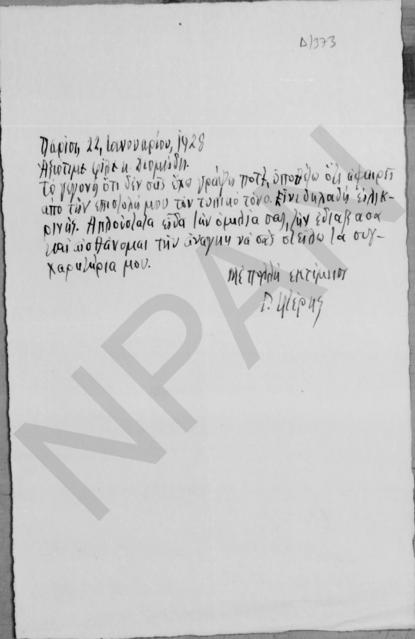 Δ/373
Παρίσι, 22, Ιανουαρίου, 1928
Αξιότιμε φίλε κ. Διομήδη.
Το γεγονός ότι δεν σας έχω γράψει ποτέ, υποθέτω ότι αφαιρεί
από την επιστολή μου τον τυπικό τόνο. Είνε δηλαδή ειλικ-
ρινής. Απλούστατα είδα την ομιλία σας, την εδιάβασα
και αισθάνομαι την ανάγκη να σας στείλω τα συγ-
χαρητήρια μου.
Με πολλή εκτίμηση